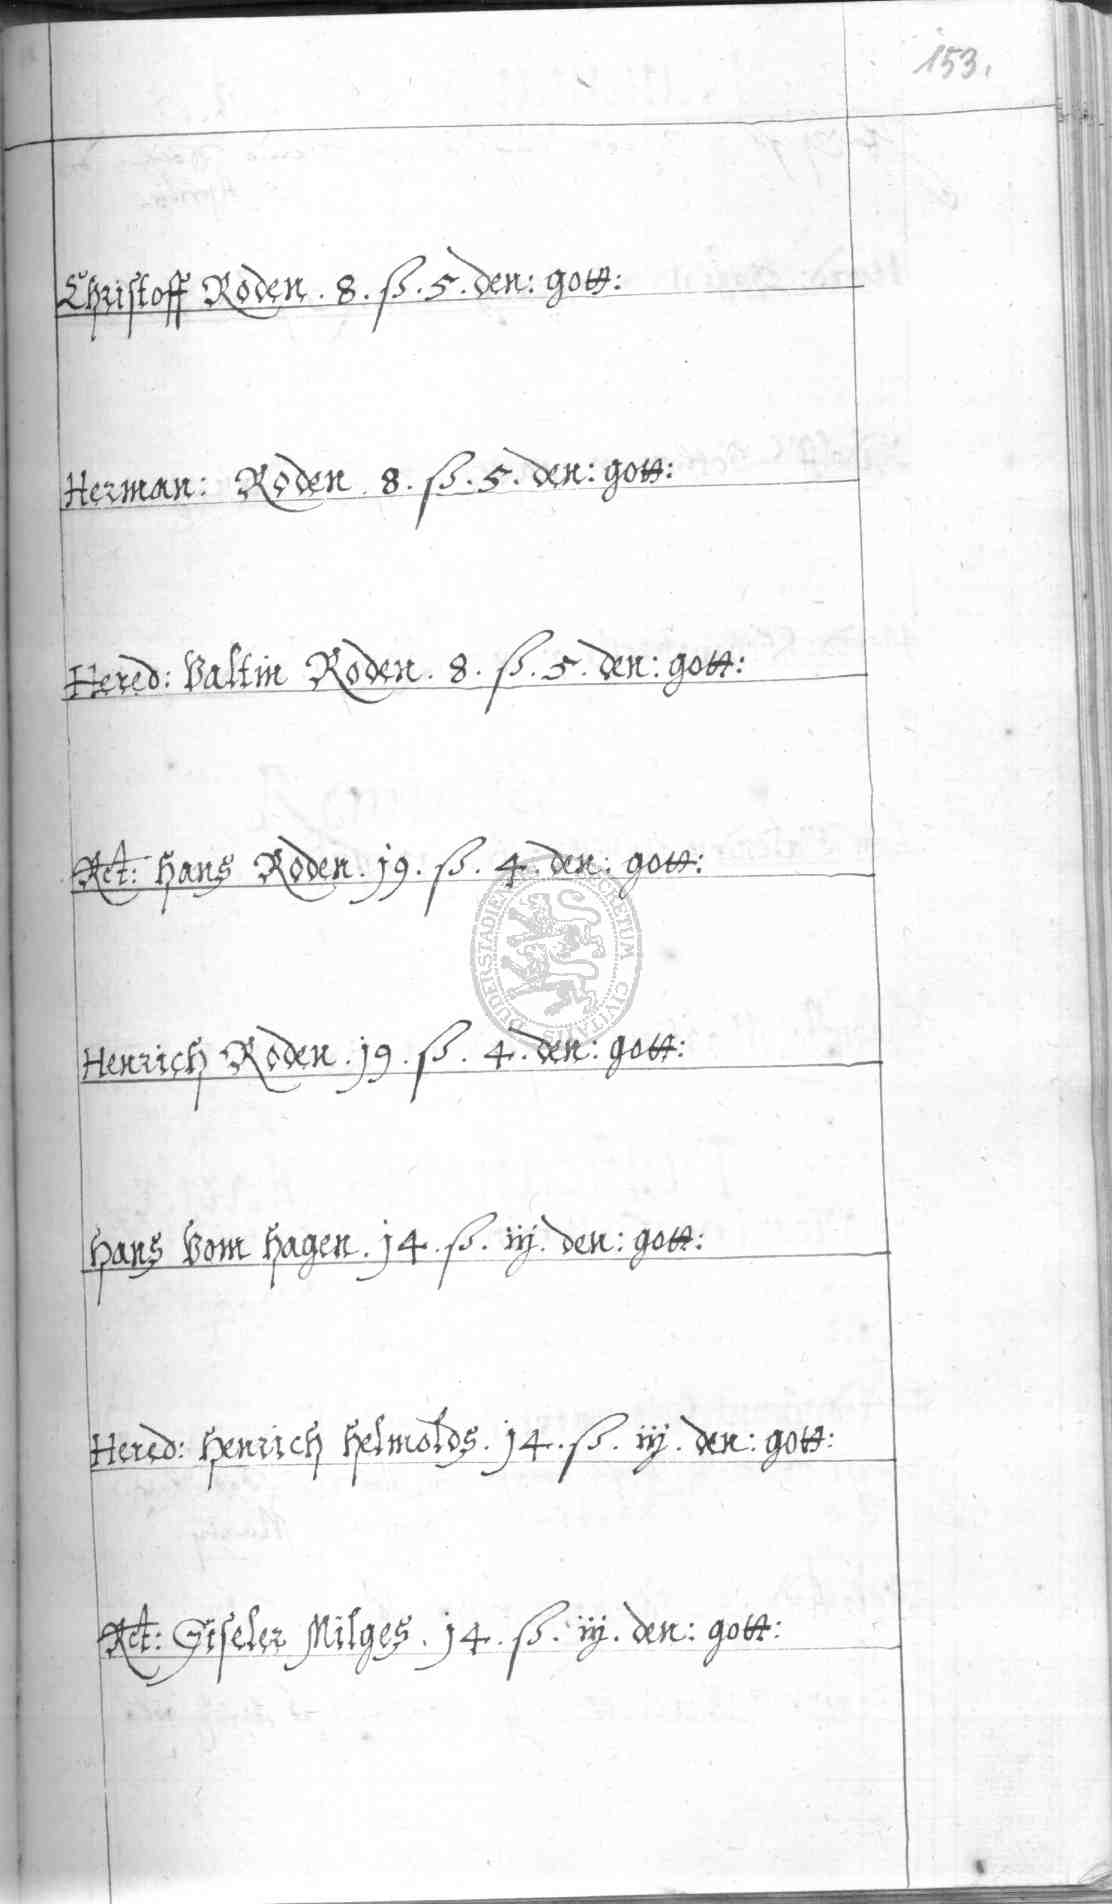 153.
Christoff Roden . 8 . ß . 5 . den: gott:
Herman: Roden . 8 . ß . 5 . den: gott:
Hered: Valtin Roden . 8 . ß . 5 . den: gott:
Rct: Hans Roden . j9 . ß . 4 . den: gott:
DUDERSTADIENSIS SECRETUM CIVITATIS
Henrich Roden . j9 . ß . 4 . den: gott:
Hans Vom Hagen . j4 . ß . iij . den: gott:
Hered: Henrich Helmolds . j4 . ß . iij . den: gott:
Rct: Giseler Milges . j4 . ß . iij . den: gott: